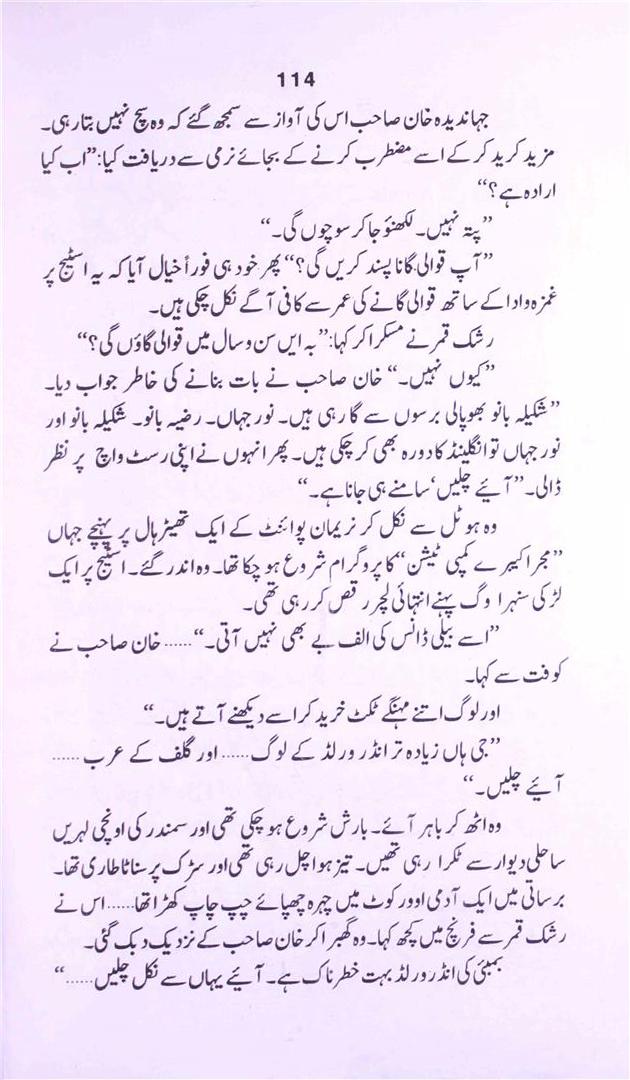 114
جہاندیدہ خان صاحب اس کی آواز سے سمجھ گئے کہ وہ سچ نہیں بتا رہی۔
مزید کرید کر کے اسے مضطرب کرنے کے بجائے نرمی سے دریافت کیا: ”اب کیا
ارادہ ہے؟“
”پتہ نہیں۔ لکھنؤ جا کر سوچوں گی۔“
”آپ قوالی گانا پسند کریں گی؟“ پھر خود ہی فوراً خیال آیا کہ یہ اسٹیج پر
غمزہ و ادا کے ساتھ قوالی گانے کی عمر سے کافی آگے نکل چکی ہیں۔
رشک قمر نے مسکرا کر کہا: ”بہ ایں سن و سال میں قوالی گاؤں گی؟“
”کیوں نہیں۔“ خان صاحب نے بات بنانے کی خاطر جواب دیا۔
”شکیلہ بانو بھوپالی برسوں سے گا رہی ہیں۔ نور جہاں۔ رضیہ بانو۔ شکیلہ بانو اور
نور جہاں تو انگلینڈ کا دورہ بھی کر چکی ہیں۔ پھر انہوں نے اپنی رسٹ واچ پر نظر
ڈالی۔ ”آئیے چلیں‘ سامنے ہی جانا ہے۔“
وہ ہوٹل سے نکل کر نریمان پوائنٹ کے ایک تھیٹر ہال پر پہنچے جہاں
”مجرا کیبرے کمپی ٹیشن“ کا پروگرام شروع ہو چکا تھا۔ وہ اندر گئے۔ اسٹیج پر ایک
لڑکی سنہرا وگ پہنے انتہائی لچر رقص کر رہی تھی۔
”اسے بیلی ڈانس کی الف بے بھی نہیں آتی۔“...... خان صاحب نے
کوفت سے کہا۔
اور لوگ اتنے مہنگے ٹکٹ خرید کر اسے دیکھنے آتے ہیں۔“
”جی ہاں زیادہ تر انڈر ورلڈ کے لوگ...... اور گلف کے عرب......
آئیے چلیں۔“
وہ اٹھ کر باہر آئے۔ بارش شروع ہو چکی تھی اور سمندر کی اونچی لہریں
ساحلی دیوار سے ٹکرا رہی تھیں۔ تیز ہوا چل رہی تھی اور سڑک پر سناٹا طاری تھا۔
برساتی میں ایک آدمی اوور کوٹ میں چہرہ چھپائے چپ چاپ کھڑا تھا...... اس نے
رشک قمر سے فرنچ میں کچھ کہا۔ وہ گھبرا کر خان صاحب کے نزدیک دبک گئی۔
بمبئی کی انڈر ورلڈ بہت خطرناک ہے۔ آئیے یہاں سے نکل چلیں......“